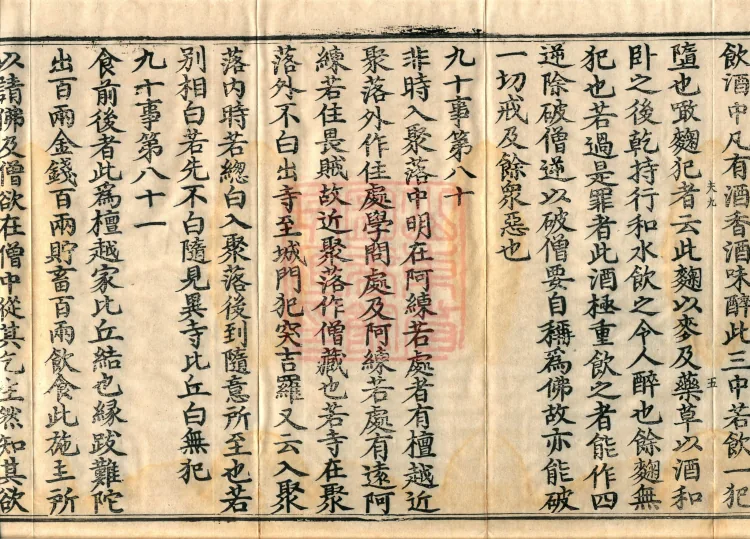 飲酒中凡有酒香酒味醉此三中若飲一犯
墮也噉麴犯者云此麴以麥及藥草以酒和
卧之後乾持行和水飲之令人醉也餘麴無
犯也若過是罪者此酒極重飲之者能作四
逆除破僧逆以破僧要自稱為佛故亦能破
一切戒及餘衆惡也
九十事第八十
非時入聚落中明在阿練若處者有檀越近
聚落外作住處學問處及阿練若處有遠阿
練若住畏賊故近聚落作僧藏也若寺在聚
落外不白出寺至城門犯突吉羅又云入聚
落内時若緫白入聚落後到隨意所至也若
別相白若先不白隨見異寺比丘白無犯
九十事第八十一
食前後者此為檀越家比丘結也緣跋難陀
出百兩金錢百兩貯畜百兩飲食此施主所
以請佛及僧欲在僧中從其乞主然知其欲
夫九
五